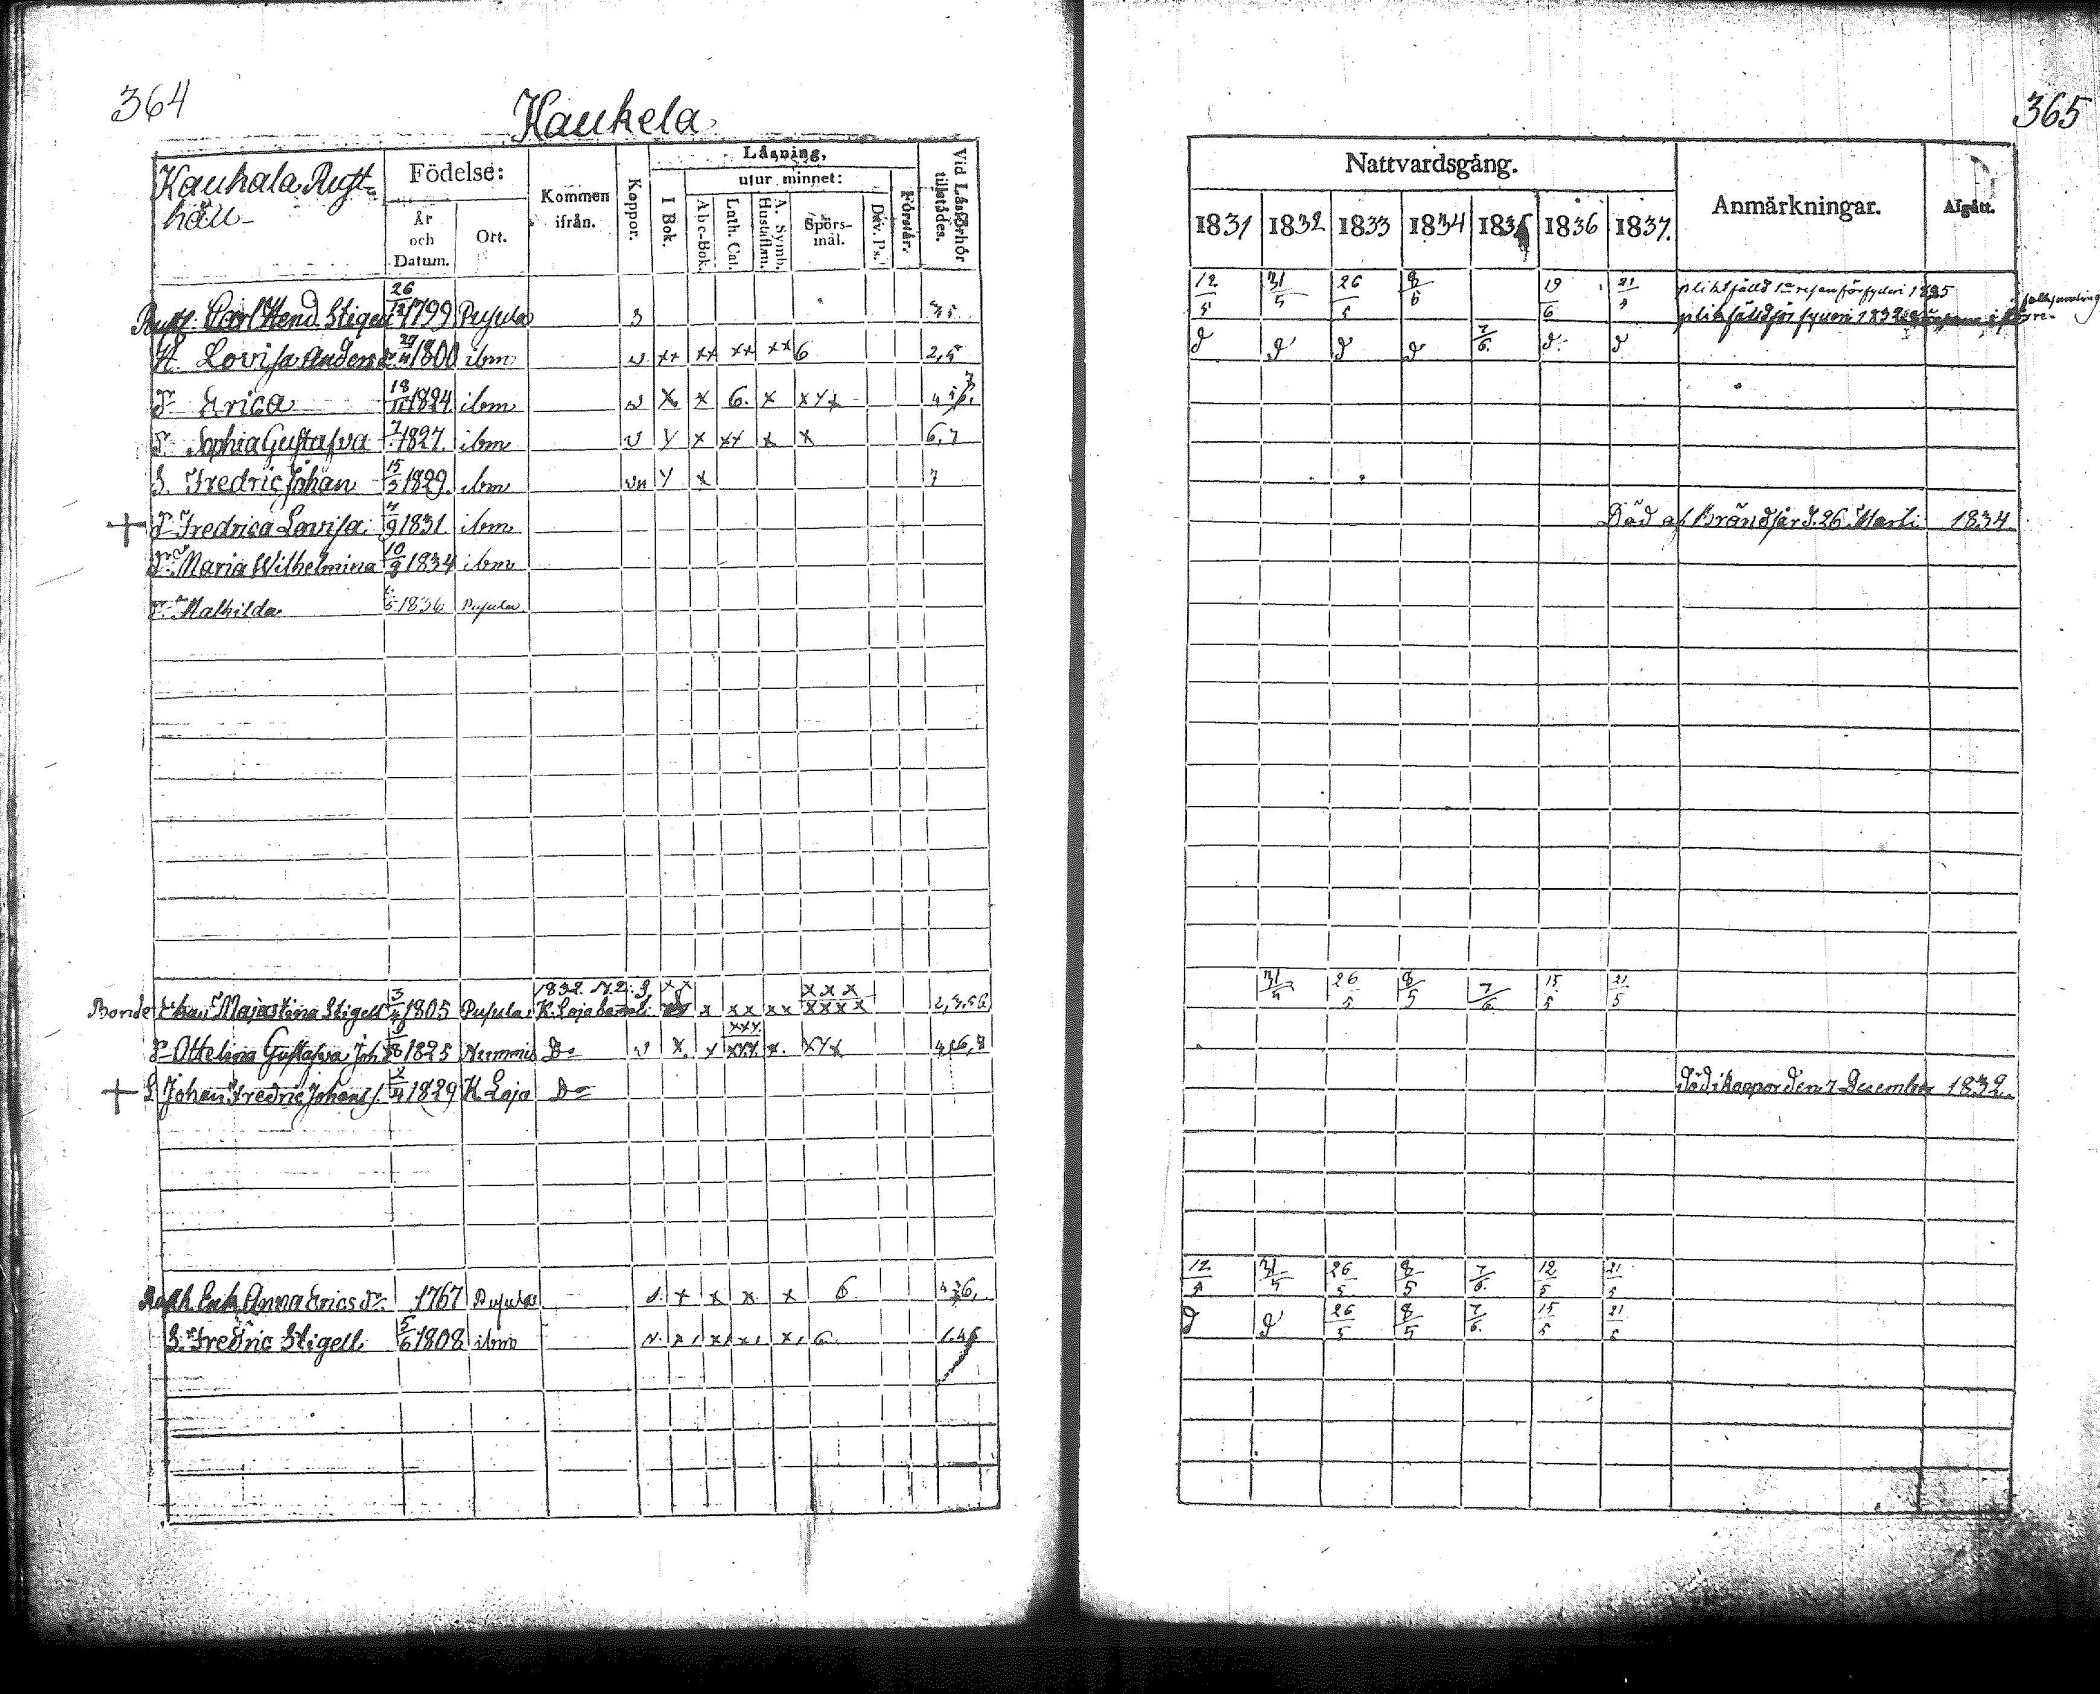 364
Kauhela
Kauhala Rust-
håll
Födelse:
År och Datum.
Ort.
Kommen ifrån.
Koppor.
Läsning,
I Bok.
utur minnet:
A-b-c-Bok.
Luth. Cat.
A. Symb. Hustaflan.
Spörs-mål.
Dav. Ps.
Förstår.
Vid Läsförhör tillstädes.
Rustl. Carl Hend. Stigell 26/12 1799 Pusula 3
H. Lovisa Andersdr 1800 ibm v xx xx xx xx 6 2,5
Dr Erica 18/11 1824 ibm v x x 6. x xxx
Dr Sophia Gustafva 1827. ibm v x x xx x x 6,7
S. Fredric Johan 15/3 1829. ibm vn x x 7
+ Dr Fredrica Lovisa 7/9 1831. ibm
Dr Maria Wilhelmina 10/9 1834 ibm
Dr Mathilda 1836 Pusula
1832. N.2. xx xxx
Bonde Majastina Stigell 3/4 1805 Pusula K. Loja x xx xx xxxx 2,3,5,6
xxx
Dr Ottelina Gustafva Joh 1825 Nummis Do v x. x xxx x. xxx
+ S Johan Fredric Johanss. 1829 K Loja Do
Enk. Anna Ericsdr. 1767 Pusula v. x x x x 6
S. Fredric Stigell. 5/6 1808 ibm v. x x x x 6.
365
Nattvardsgång.
1831 1832 1833 1834 1835 1836 1837.
Anmärkningar.
Afgått.
12/5 31/5 26/5 8/5 19/6 21/5 pliktfälld 1a resan för fylleri 1835
plikfälld för fylleri 1832
d d d d 7/6. d. d
Död af Brandsår d. 26 Martii 1834
31/5 26/5 8/5 7/6 15/5 21/5
död i koppor den 7 December 1832.
12/5 31/5 26/5 8/5 7/6. 12/5 21/5
d d 26/5 8/5 7/6. 15/5 21/5